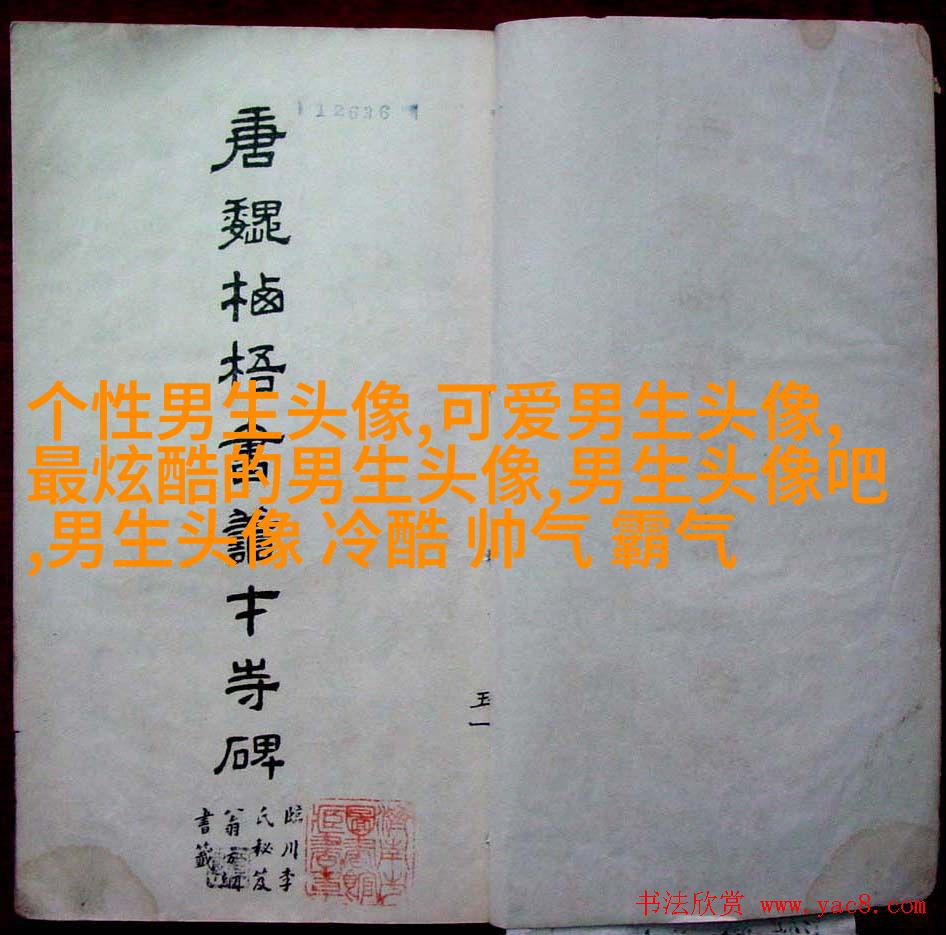 12636
唐魏栖梧書善才寺碑
臨川李
氏秘笈
翁方綱
書籤
个性男生头像,可爱男生头像,
最炫酷的男生头像,男生头像吧
,男生头像 冷酷 帅气 霸气
玉一
书法欣赏 www.yac8.com